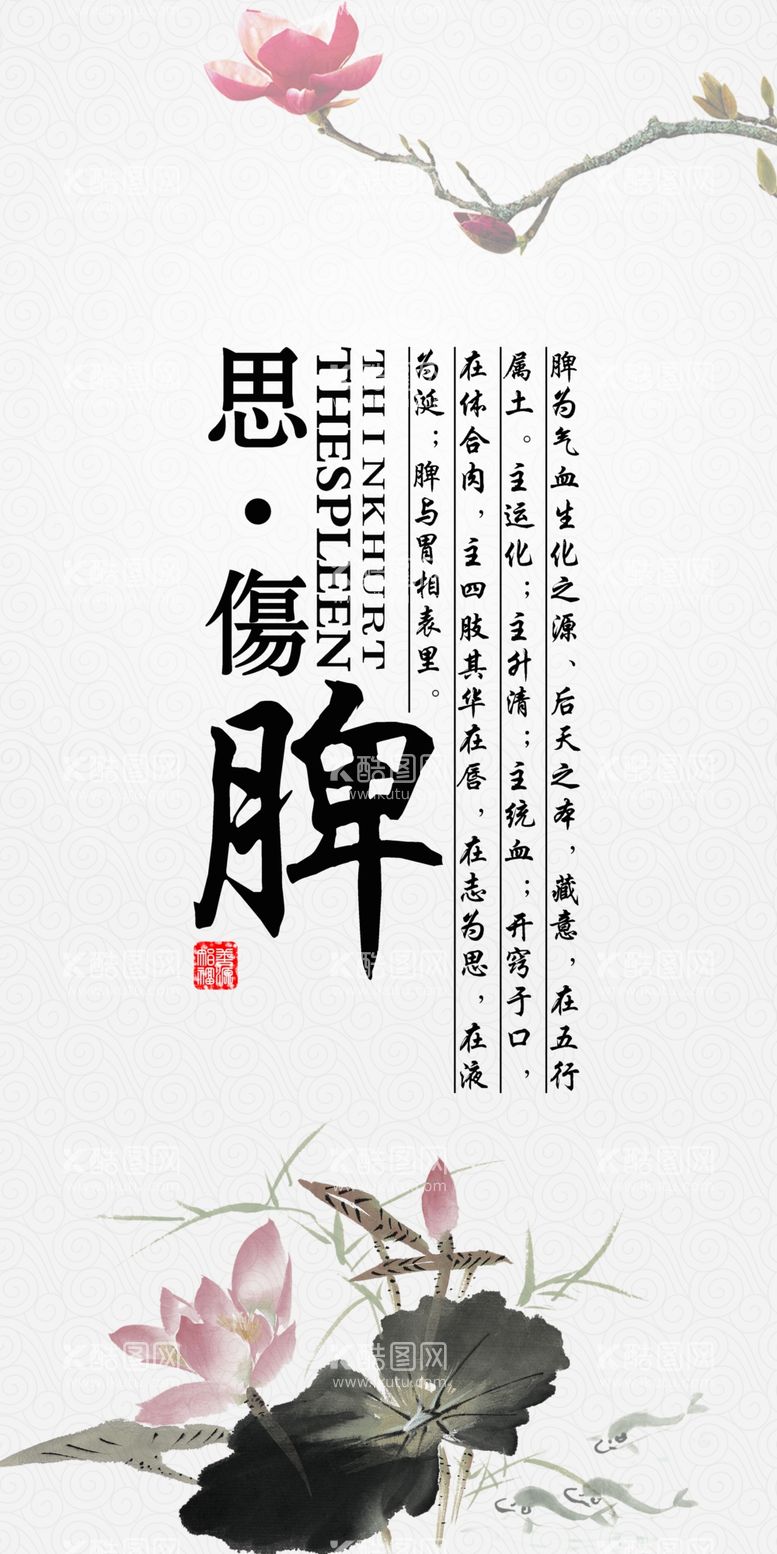 脾为气血生化之源、后天之本，藏意，在五行
属土。主运化；主升清；主统血；开窍于口，
在体合肉，主四肢其华在唇，在志为思，在液
为涎；脾与胃相表里。
THINKHURT
THESPLEEN
思·傷
脾
酷图网
www.ikutu.com